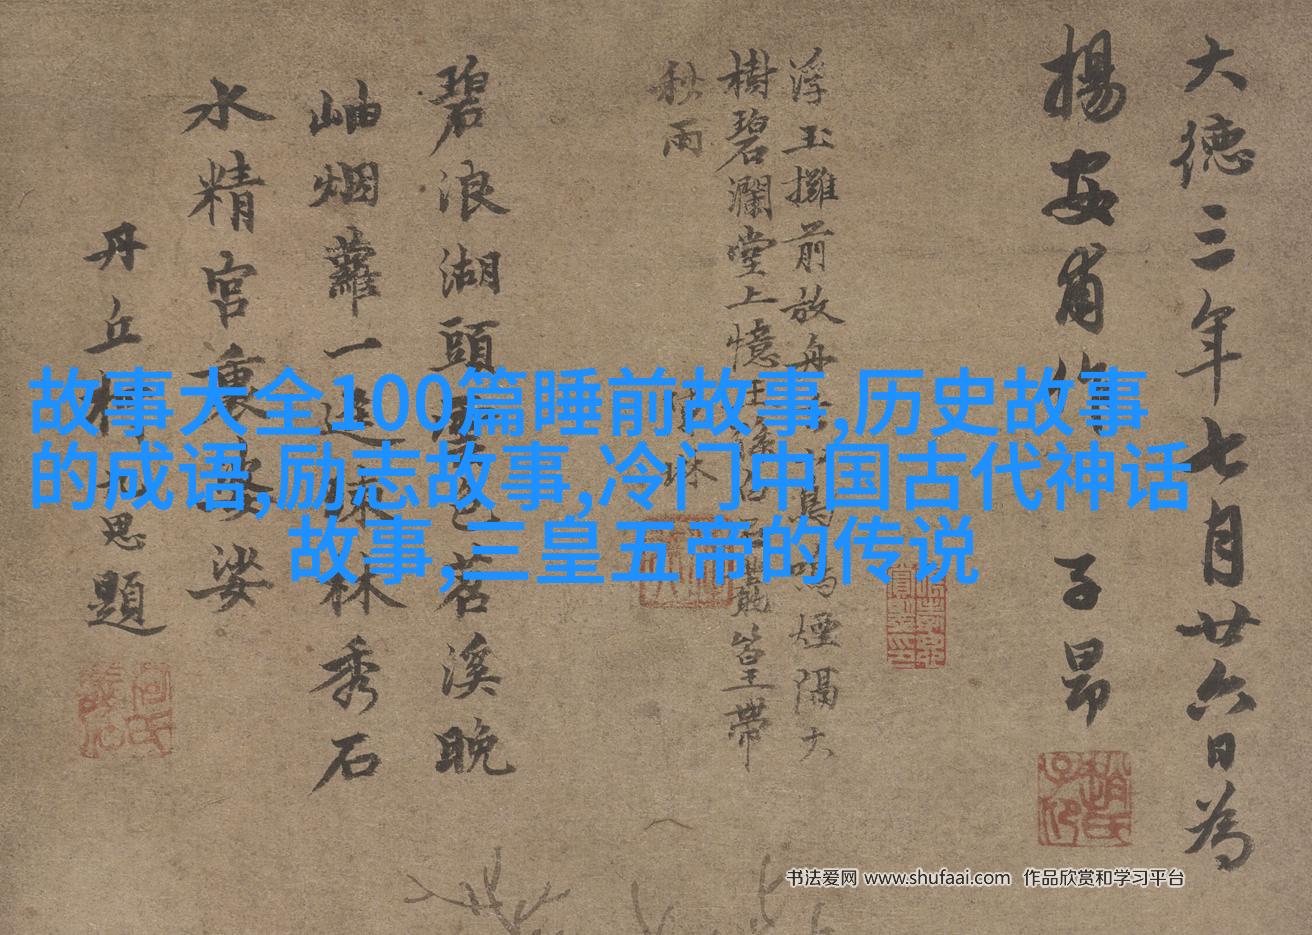 大德三年七月廿六日為
揚安甫作 子昂
浮玉攤前放舟 煙隔大
樹碧瀾堂上憶 篁帶
秋雨
碧浪湖頭 色苕溪晚
岫烟蘿一 疎林秀石
水精宮裏婆娑
丹丘柯九思題
趙氏子昂
故事大全100篇睡前故事,历史故事
的成语,励志故事,冷门中国古代神话
故事,三皇五帝的传说
书法爱网 www.shufaai.com 作品欣赏和学习平台